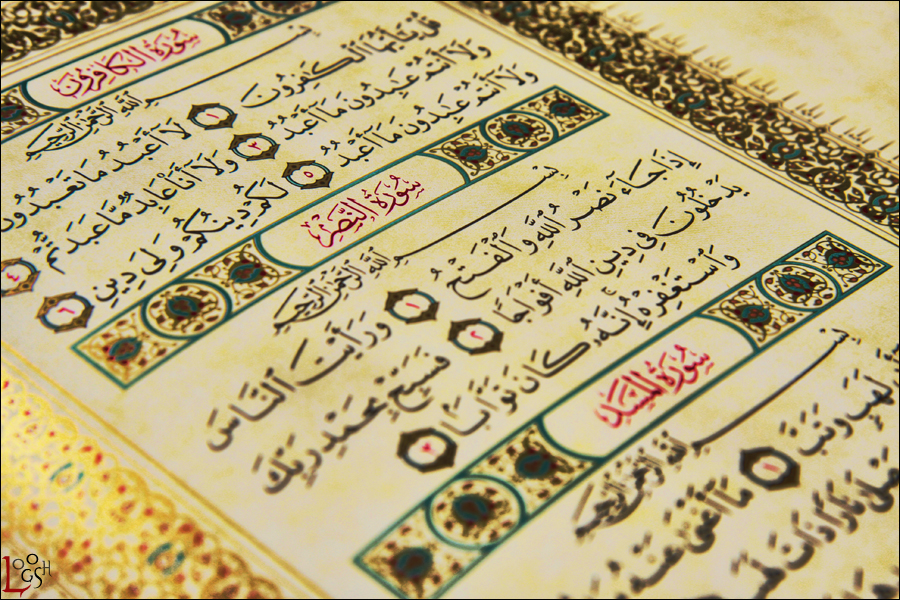 سُورَةُ الكافِرُون
بِسْمِ ٱللَّهِ ٱلرَّحْمَٰنِ ٱلرَّحِيمِ
قُلْ يَٰٓأَيُّهَا ٱلْكَٰفِرُونَ ١ لَآ أَعْبُدُ مَا تَعْبُدُونَ
وَلَآ أَنتُمْ عَٰبِدُونَ مَآ أَعْبُدُ ٣ وَلَآ أَنَا۠ عَابِدٌ مَّا عَبَدتُّمْ ٤
وَلَآ أَنتُمْ عَٰبِدُونَ مَآ أَعْبُدُ ٥ لَكُمْ دِينُكُمْ وَلِىَ دِينِ ٦
سُورَةُ النَّصْر
بِسْمِ ٱللَّهِ ٱلرَّحْمَٰنِ ٱلرَّحِيمِ
إِذَا جَآءَ نَصْرُ ٱللَّهِ وَٱلْفَتْحُ ١ وَرَأَيْتَ ٱلنَّاسَ
يَدْخُلُونَ فِى دِينِ ٱللَّهِ أَفْوَاجًا ٢ فَسَبِّحْ بِحَمْدِ رَبِّكَ
وَٱسْتَغْفِرْهُ إِنَّهُۥ كَانَ تَوَّابًۢا ٣
سُورَةُ المَسَد
بِسْمِ ٱللَّهِ ٱلرَّحْمَٰنِ ٱلرَّحِيمِ
لَهَبٍ وَتَبَّ ١ مَآ أَغْنَىٰ عَنْهُ
نَارًا ذَاتَ لَهَبٍ
LOOGSH